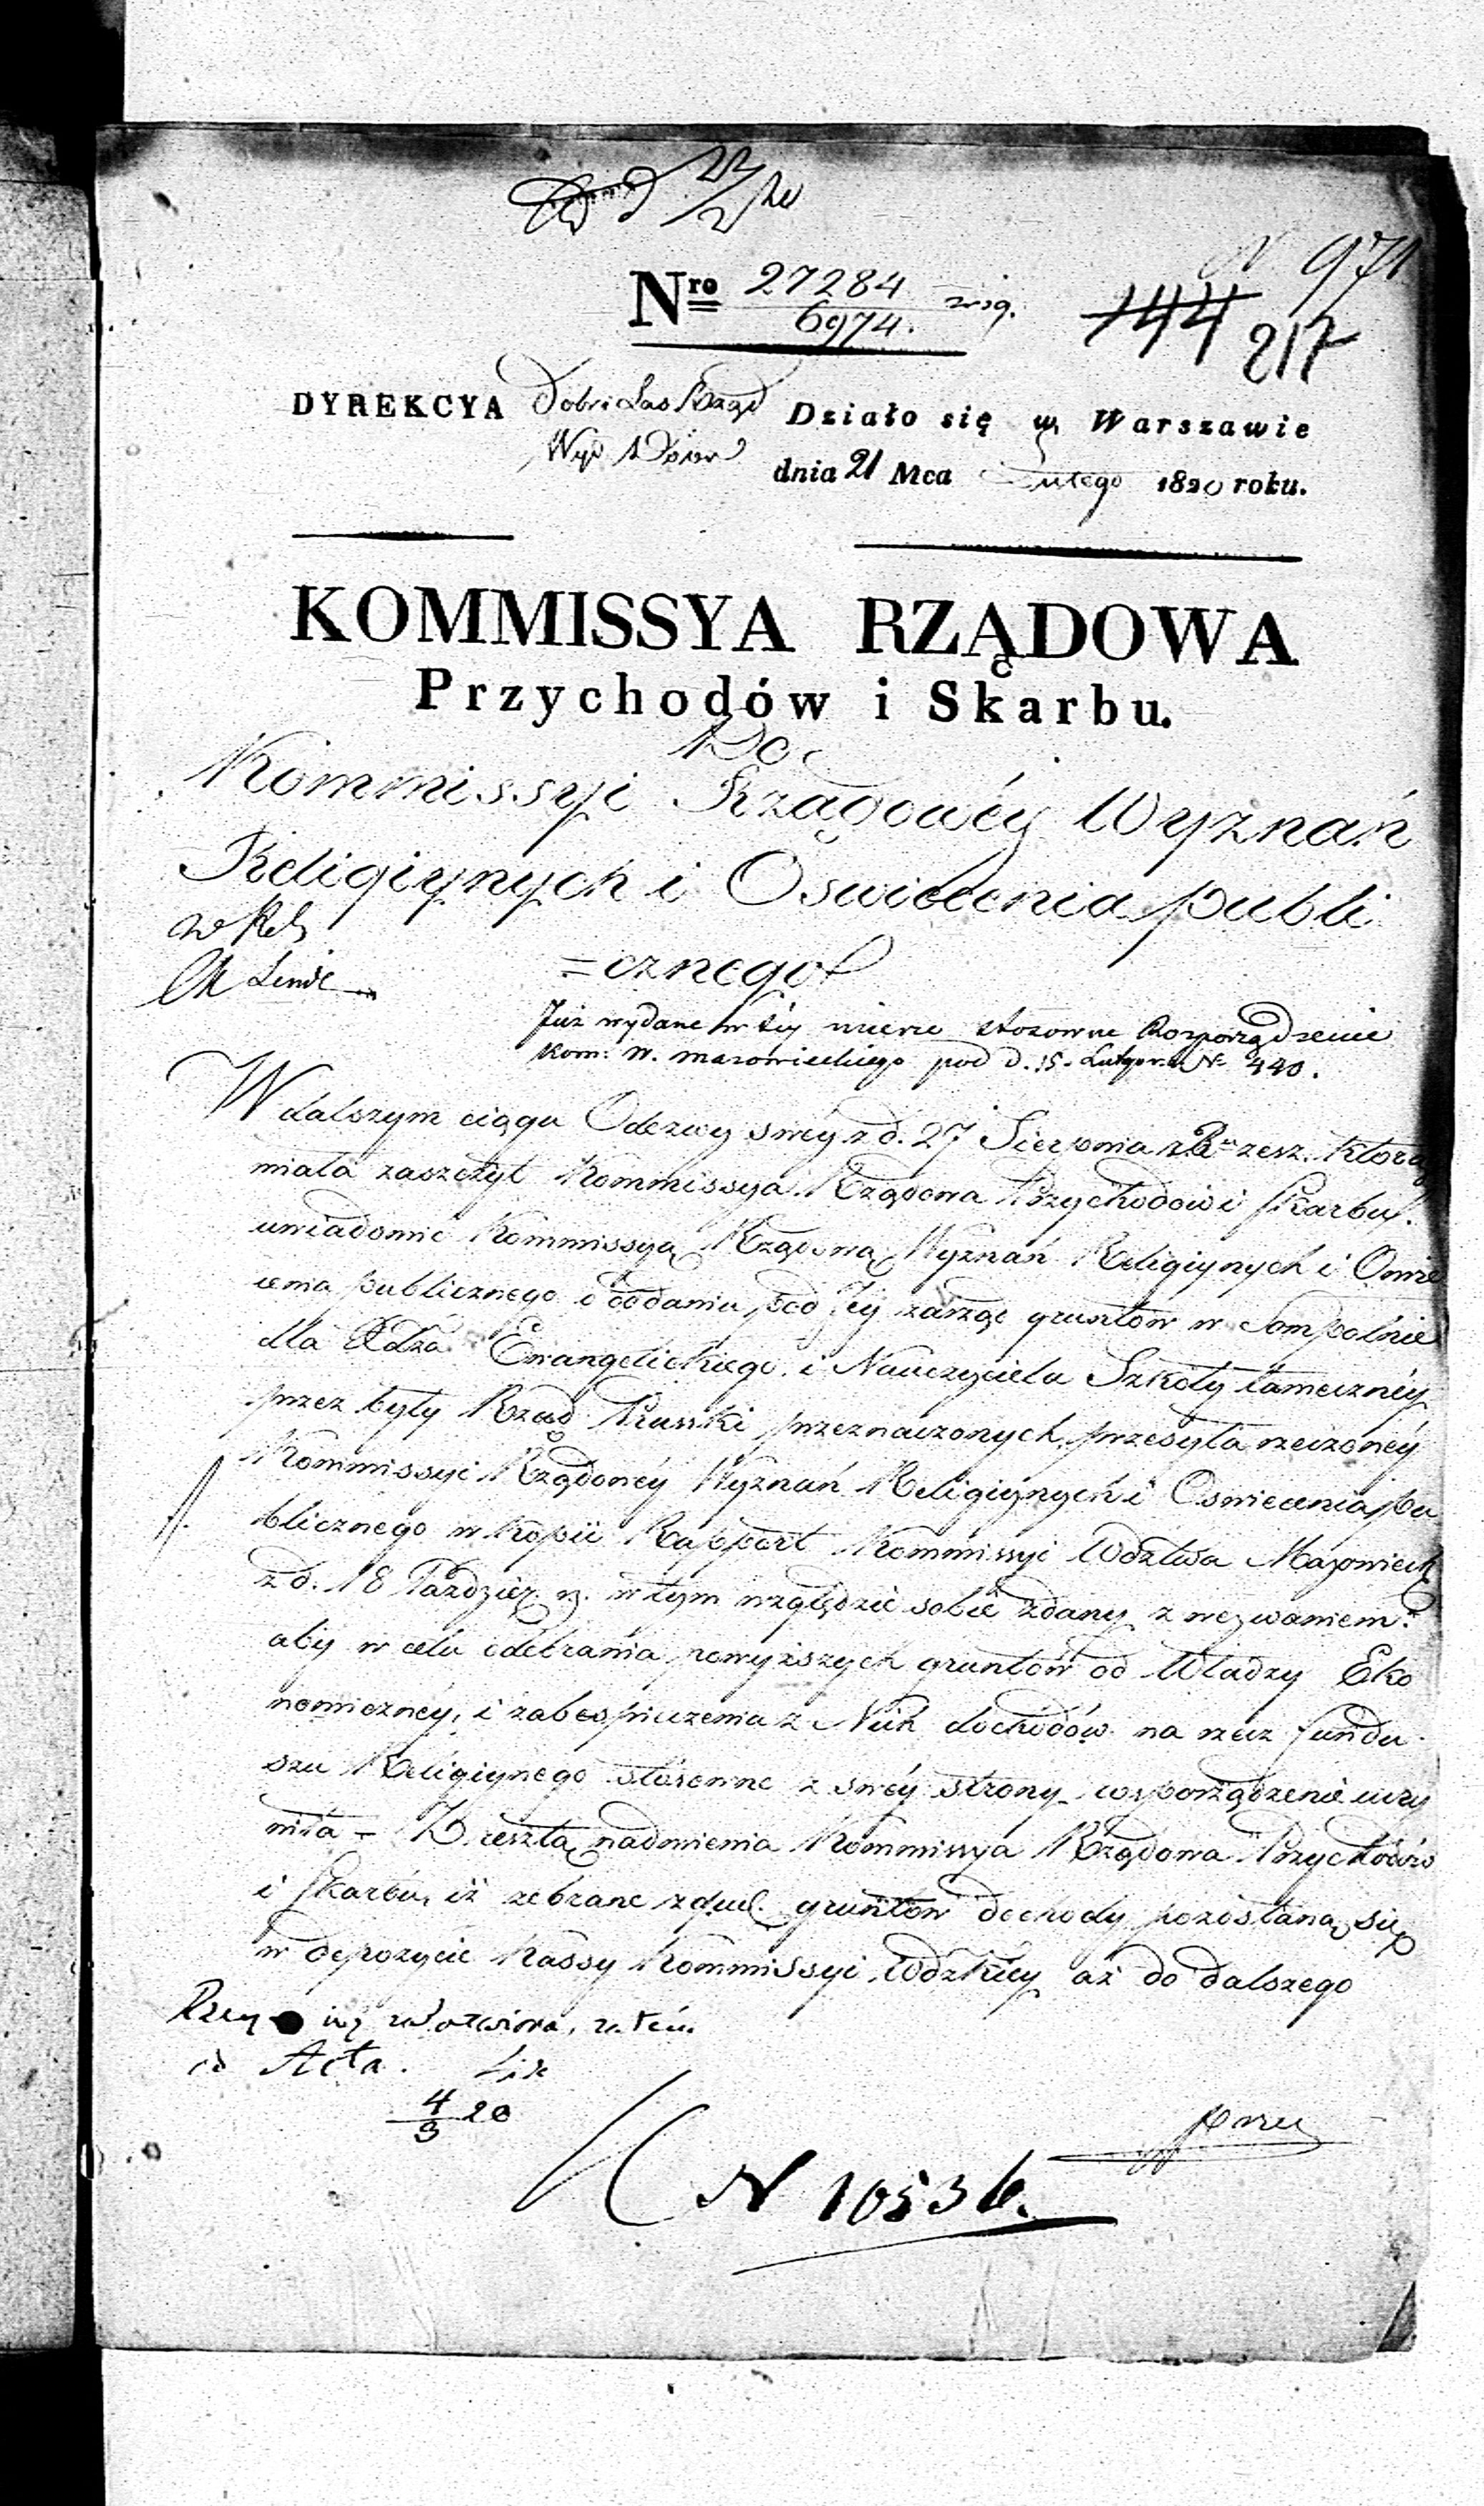 22/2 20
N 971
Nro 27284/6974.
144 217
DYREKCYA Dóbr i Las Rząd Działo się w Warszawie
Wyd
dnia 21 Mca Lutego 1820 roku.
KOMMISSYA RZĄDOWA
Przychodów i Skarbu.
Do
Kommissyi Rządowéy Wyznań
Religiynych i Oswiecenia publi
=cznego
Linde
Już wydane w téy mierze stosowne Rozporządzenie
Kom: W. Mazowieckiego pod d. 15. Lutego N 440.
W dalszym ciągu Odezwy swéy z d. 27 Sierpnia zesz. którą
miała zaszczyt Kommissya Rządowa Przychodów i Skarbu
uwiadomić Kommissyą Rządową Wyznań Religiynych i Oswie
cenia publicznego o oddaniu pod Jéy zarząd gruntów w Sompolnie
dla Xdza Ewangelickiego i Nauczyciela Szkoły tamecznéy
przez były Rząd Pruski przeznaczonych, przesyła rzeczonéy
Kommissyi Rządowéy Wyznań Religiynych i Oswiecenia pu
blicznego w Kopii Rapport Kommissyi Wdztwa Mazowieck
z d. 18 Paździer. w tym względzie sobie zdany z wezwaniem:
aby w celu odebrania powyższych gruntów od Władzy Eko
nomicznéy, i zabespieczenia z Nich dochodów na rzecz fundu
szu Religiynego stósowne z swéy strony rosporządzenie uczy
niła – Z resztą nadmienia Kommissya Rządowa Przychodów
i Skarbu, iż zebrane z gruntów dochody pozostaną się
w depozycie Kassy Kommissyi Wdzkiéy aż do dalszego
Acta.
4/3 20
N 10536.